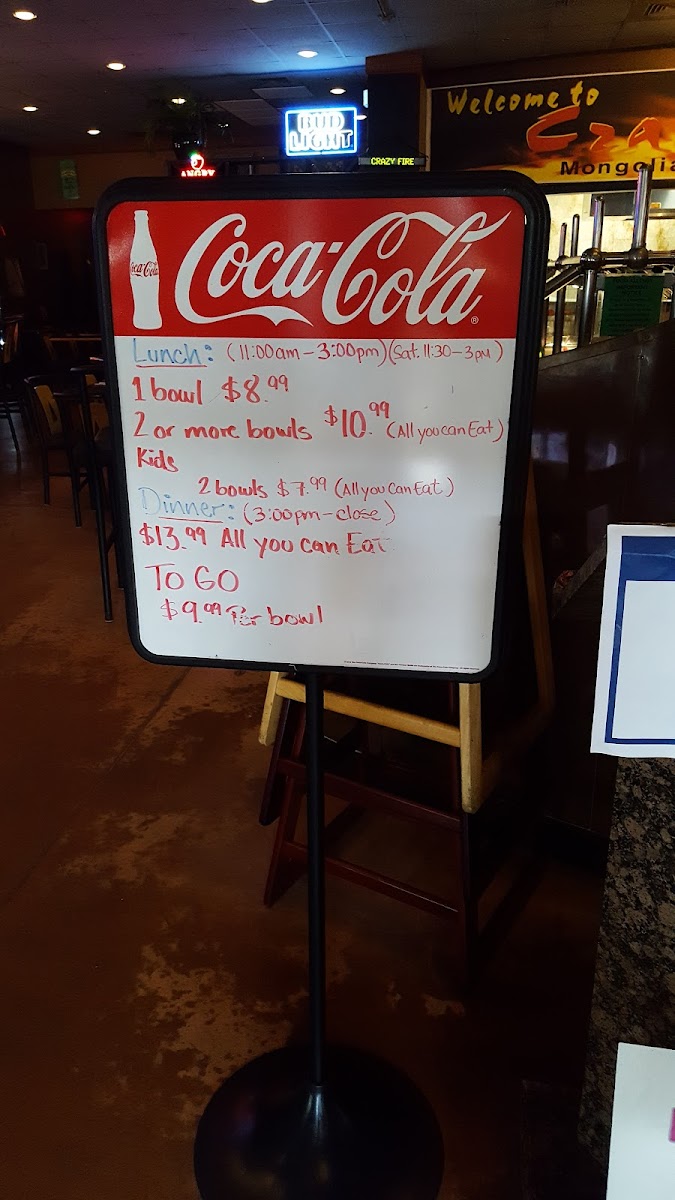 BUD
LIGHT
ANGRY
CRAZY FIRE
Welcome to
Mongolia
Coca-Cola
Coca-Cola
Lunch: (11:00am - 3:00pm) (Sat. 11:30 - 3PM)
1 bowl $8.99
2 or more bowls $10.99 (All you can Eat)
Kids
2 bowls $7.99 (All you Can Eat)
Dinner: (3:00pm - close)
$13.99 All you can Eat
TO GO
$9.99 Per bowl